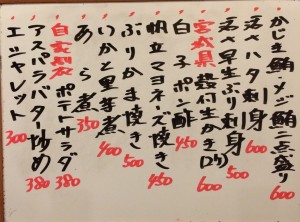 かじき鮪メジ鮪二点盛り 600
活〆ハタ刺身 600
活〆早生ぶり刺身 500
宮城県 殻付生かき(2ケ) 600
白子ポン酢 450
帆立マヨネーズ焼き 450
ぶりかま焼き 500
いかと里芋煮 400
あら煮 350
自家製ポテトサラダ 380
アスパラバター炒め 380
エシャレット 300